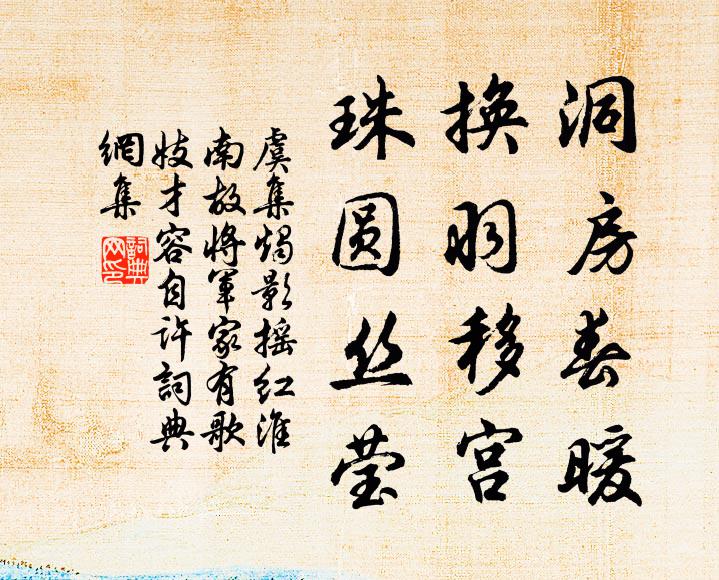 洞房春暖
换羽移宫
珠圆丝莹
虞集烛影摇红淮
南故将军家有歌
妓才容自许词典
網集
詞典
网印